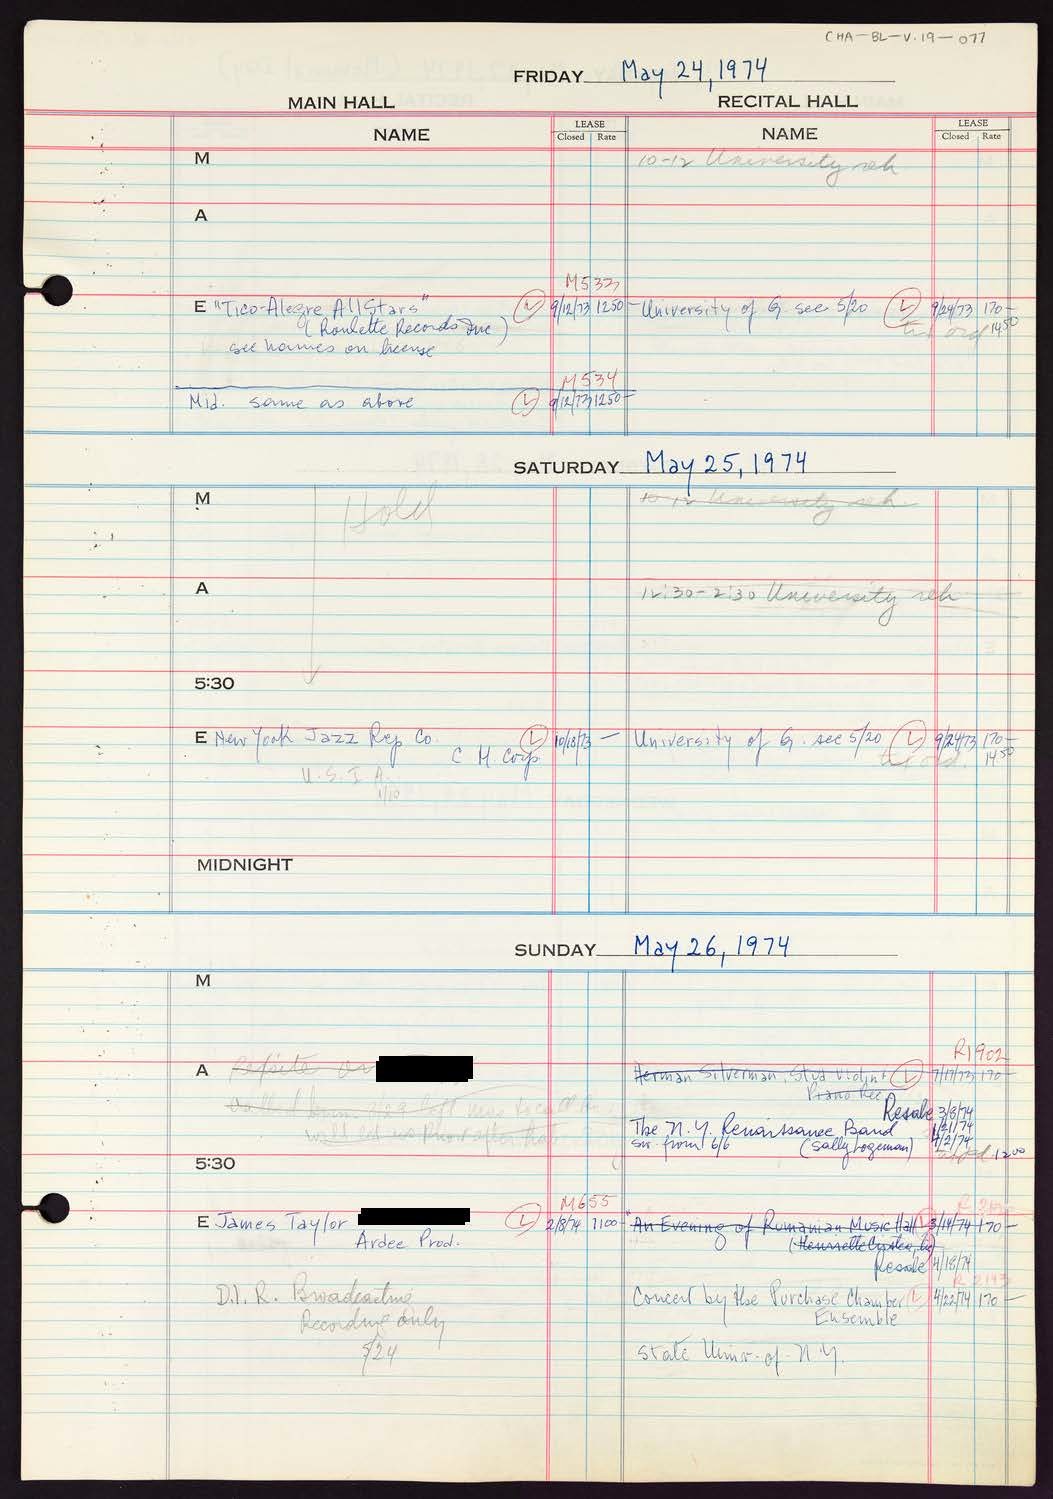 CHA-BL-V.19-077
FRIDAY May 24, 1974
MAIN HALL RECITAL HALL
NAME LEASE Closed Rate NAME LEASE Closed Rate
M 10-12 University reh
A
M533
E "Tico-Alegre All Stars" L 9/12/73 1250- University of G. see 5/20 L 9/24/73 170-
(Roulette Records Inc) 1450
see names on license
M534
Mid. same as above L 9/12/73 1250-
SATURDAY May 25, 1974
M Hold 10-12 University reh.
A 12:30-2:30 University reh
5:30
E New York Jazz Rep Co. L 10/18/73 - University of G. see 5/20 L 9/24/73 170-
C M. Corp. 1450
U.S.I.A.
1/10
MIDNIGHT
SUNDAY May 26, 1974
M
R1902
A Herman Silverman, Stud Violin + L 7/17/73 170-
Piano Rec
Resale 3/8/74
The N.Y. Renaissance Band 1/21/74
sw. from 6/6 (Sally Logeman) 4/2/74
1200
5:30
M655
E James Taylor L 2/8/74 1100 "An Evening of Rumanian Music Hall L 3/14/74 170-
Ardee Prod.
Resale 4/18/74
R 2143
D.I.R. Broadcasting Concert by the Purchase Chamber L 4/22/74 170-
Recording only Ensemble
5/24 State Univ. of N.Y.